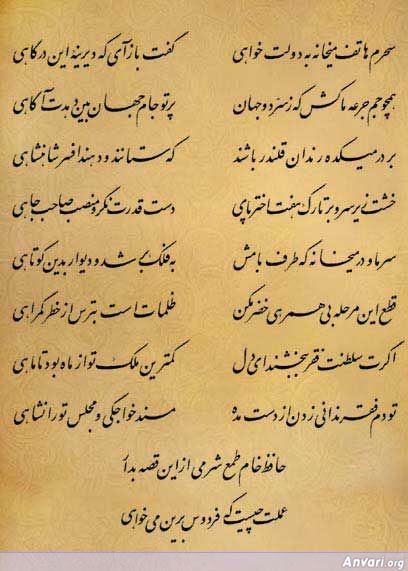 سحرم هاتف میخانه به دولت خواهی گفت بازآی که دیرینهٔ این درگاهی
همچو جم جرعه ما کش که ز سر دو جهان پرتو جام جهان بین دهدت آگاهی
بر در میکده رندان قلندر باشند که ستانند و دهند افسر شاهنشاهی
خشت زیر سر و بر تارک هفت اختر پای دست قدرت نگر و منصب صاحب جاهی
سر ما و در میخانه که طرف بامش به فلک بر شد و دیوار بدین کوتاهی
قطع این مرحله بی همرهی خضر مکن ظلمات است بترس از خطر گمراهی
اگرت سلطنت فقر ببخشند ای دل کمترین ملک تو از ماه بود تا ماهی
تو دم فقر ندانی زدن از دست مده مسند خواجگی و مجلس تورانشاهی
حافظ خام طمع شرمی از این قصه بدار
عملت چیست که فردوس برین می خواهی
Anvari.org